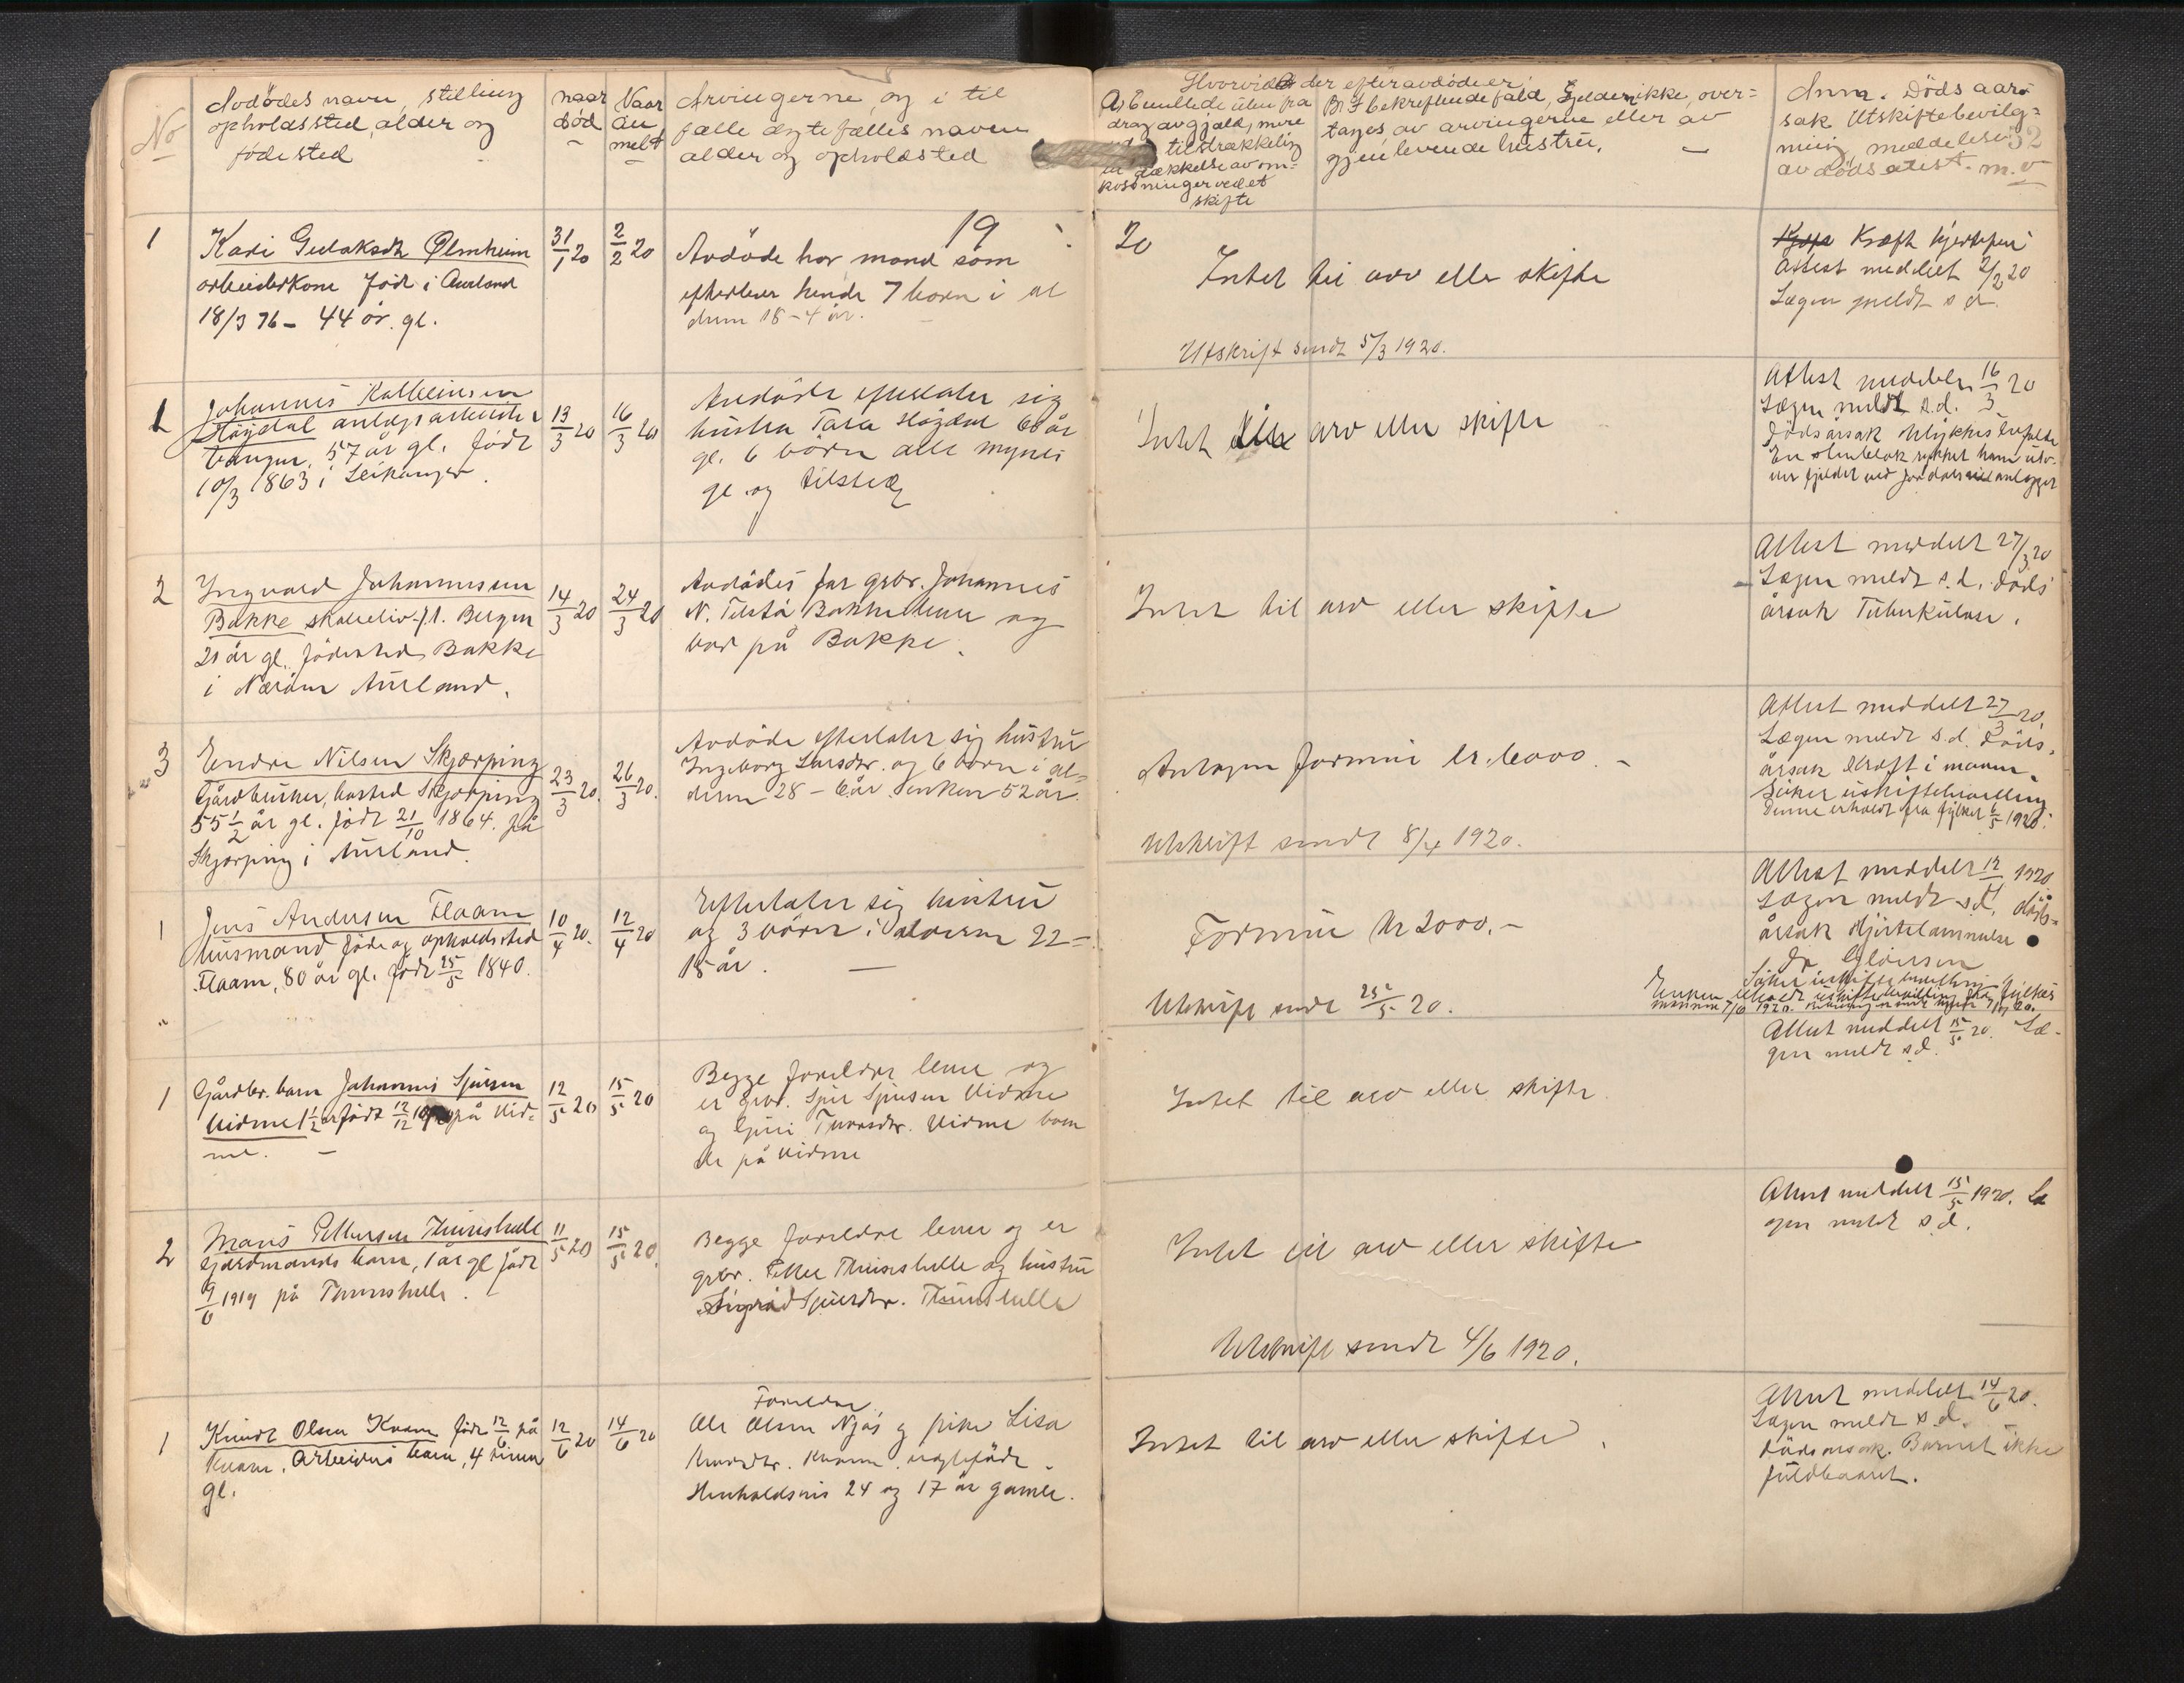 No
Avdödes navn, stilling
opholdssted, alder og
födested
naar
död
Naar
an
meldt
Arvingerne, og i til
fælle ægtefælles navn
alder og opholdsted
Hvorvidt der efter avdöde er:
A) Emidlede uten fra
drag av gjæld, mere
tilstrækkelig
til dækkelse av om=
kostninger ved et
skifte
B) I bekreftende fald, Gjelden ikke, over=
tages av arvingerne eller av
gjenlevende hustru.
Anm. Döds aar=
sak Utskiftebevilg=
ning meddelelse
av dödsatest. m. v
52
1
Kari Gulaksdt Ølmheim
arbeiderkone född i Aurland
18/3 76 - 44 år. gl.
31/1 20
2/2 20
19
Avdöde har mand som
efterlever hende 7 born i al
deren 18 - 4 år.
20
Intet til arv eller skifte
Utskrift sendt 5/3 1920.
Kræft hjertefeil
Attest meddelt 2/2 20
Lægen meldt s d.
1
Johannes
Höydal anlægsarbeider
57 år gl. född
10/3 1863 i Leikanger.
13/3 20
16/3 20
Avdöde efterlater sig
hustru Höydal 60 år
gl. 6 börn alle mynd
ge og tilsted
Intet arv eller skifte
Attest meddelt 16/3 20
Lægen meldt s.d.
Dödsårsak Ulykkestilfælde
En stenblok rykket ham uto-
ver fjeldet ved anlægget
2
Ingvald Johannessen
Bakke skoleelev f.t. Bergen
21 år gl. födested Bakke
i Nærön Aurland.
14/3 20
24/3 20
Avdödes far grbr. Johannes
N. Bakke lever og
bor på Bakke.
Intet til arv eller skifte
Attest meddelt 27/3 20
Lægen meldt s.d. Döds
årsak Tuberkulose.
3
Endre Nilsen Skjerping
Gårdbruker, bosted Skjerping
55 1/2 år gl. född 21/10 1864. på
Skjerping i Aurland.
23/3 20.
26/3 20.
Avdöde efterlater sig hustru
Ingeborg Larsdtr. og 6 born i al=
deren 28 - 6 år. enken 52 år.
Antagen formue kr. 6000. -
Utskrift sendt 8/4 1920.
Attest meddelt 27/3 20.
Lægen meldt s.d. Döds.
årsak Kræft i maven.
Söker uskiftebevilling
Denne erholdt fra fylket 6/5 1920.
1
Jens Andersen Flaam
husmand föde og opholdssted
Flaam, 80 år gl. född 25/5 1840.
10/4 20.
12/4 20
Efterlater sig hustru
og 3 börn i alderen 22 -
15 år. -
Formue Kr 2000. -
Utskrift sendt 25/5 20.
Attest meddelt 12/4 1920
Lægen meldt s d. döds=
årsak Hjertelammelse
Söker uskiftebevilling
Enken erholdt uskiftebevilling fra fylkes
manden 7/6 1920.
1
Gårdbr. barn Johannes Sjursen
Vidme 1 1/2 år född 12/12 på Vid=
me. -
12/5 20
15/5 20
Begge foreldre lever og
er grbr. Sjur Sjursen Vidme
og Guri Vidme boen
de på Vidme
Intet til arv eller skifte.
Attest meddelt 15/5 20. Læ-
gen meldt s.d.
2
Gårdmands barn, 1 år gl född
9/6 1919 på Tunshelle.
11/5 20
15/5 20.
Begge foreldre lever og er
grbr. Petter Tunshelle og hustru
Sigrid Sjursdtr. Tunshelle
Intet til arv eller skifte
Utskrift sendt 4/6 1920.
Attest meddelt 15/5 1920. Læ
gen meldt s.d.
1
Knudt Olsen Kvam född 12/6 på
Kvam. Arbeiders barn, 4 timer
gl.
12/6 20
14/6 20
Foreldre
Ole Olsen Njös og pike Lisa
Knudsdtr. Kvam. uegtefödt.
Henholdsvis 24 og 17 år gamle.
Intet til arv eller skifte.
Attest meddelt 14/6 20.
Lægen meldt s.d.
Dödsårsak. Barnet ikke
fuldbaaret.